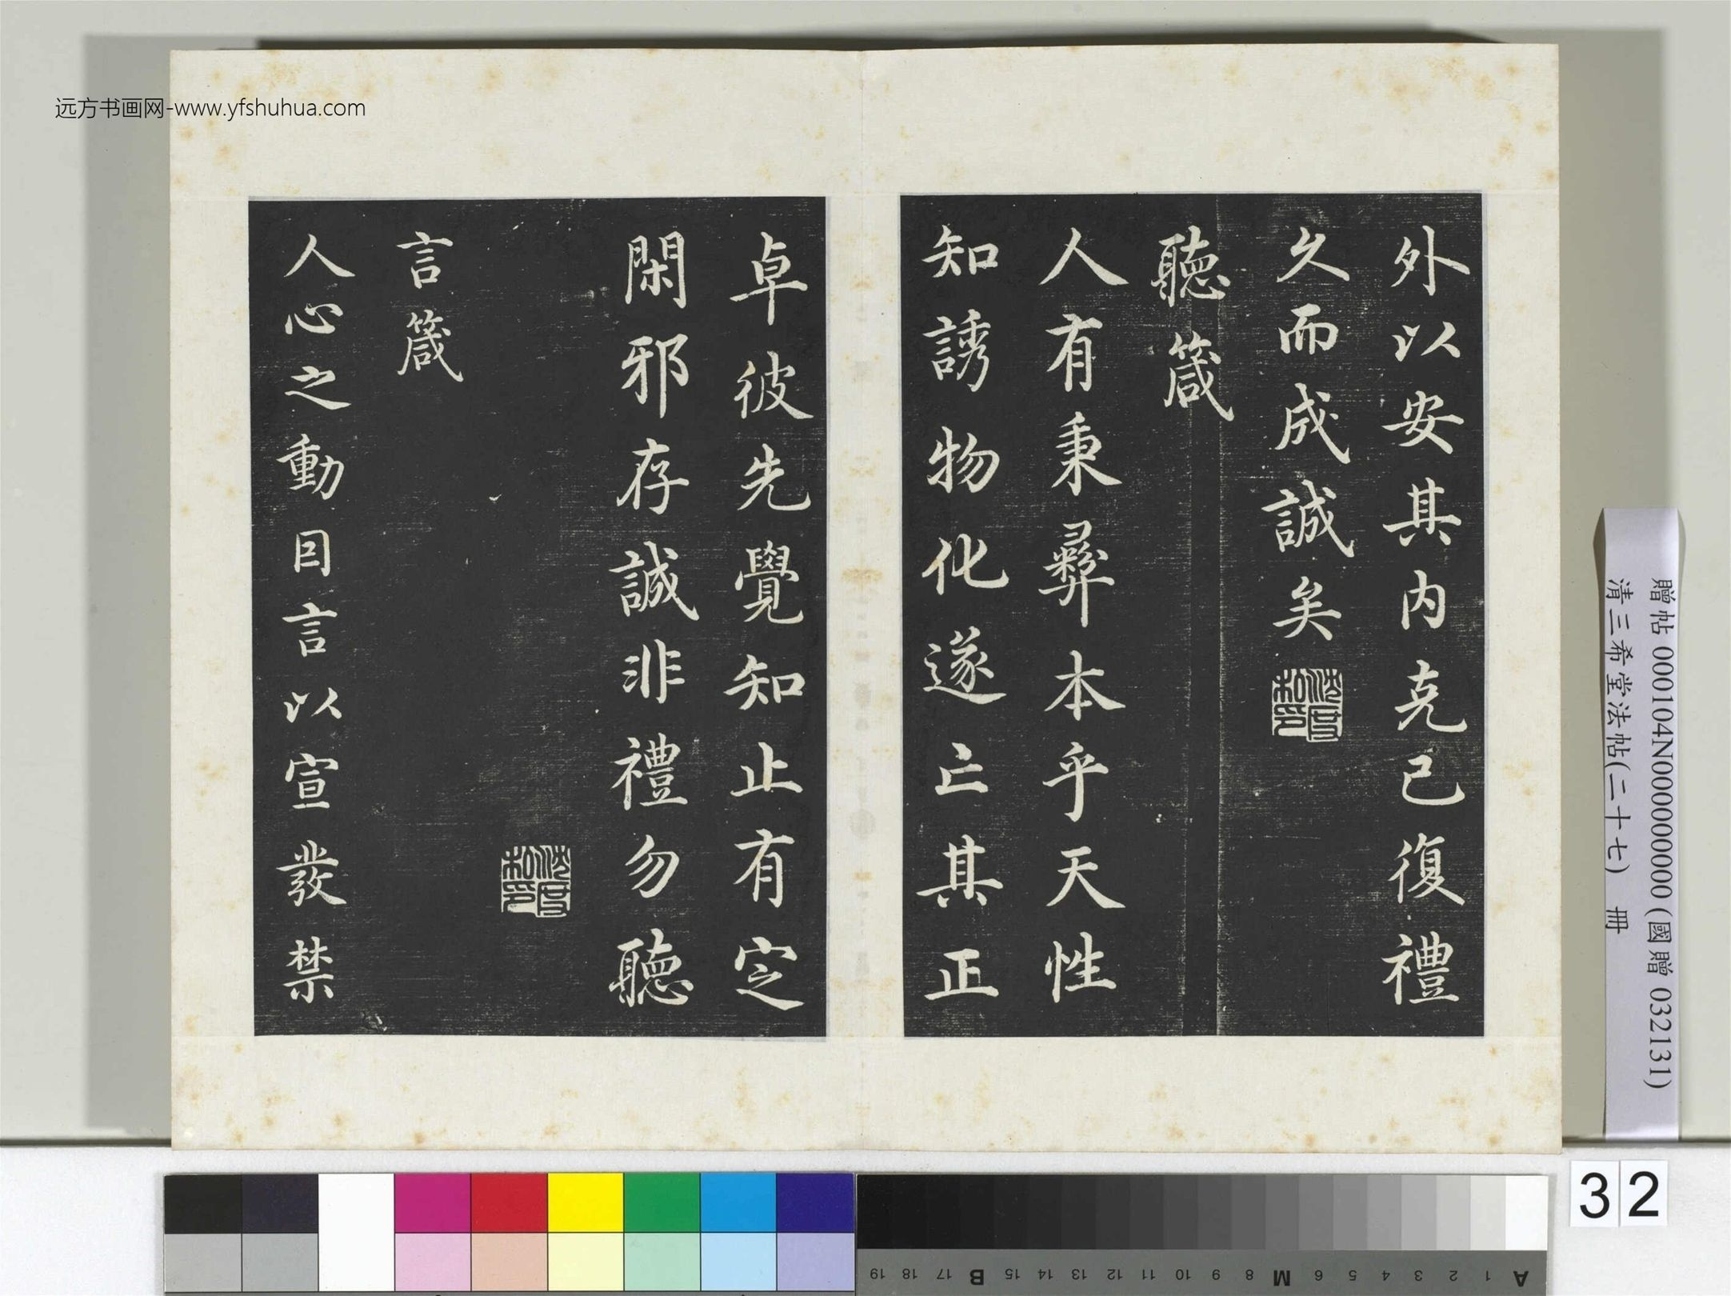 远方书画网-www.yfshuhua.com
外以安其内克己復禮
久而成誠矣
聽箴
人有秉彝本乎天性
知誘物化遂亡其正
卓彼先覺知止有定
閑邪存誠非禮勿聽
言箴
人心之動因言以宣發禁
贈帖 000104N000000000 (國贈 032131)
清三希堂法帖(二十七) 冊
32
A 1 2 3 4 5 6 M 8 9 10 11 12 13 14 15 B 17 18 19